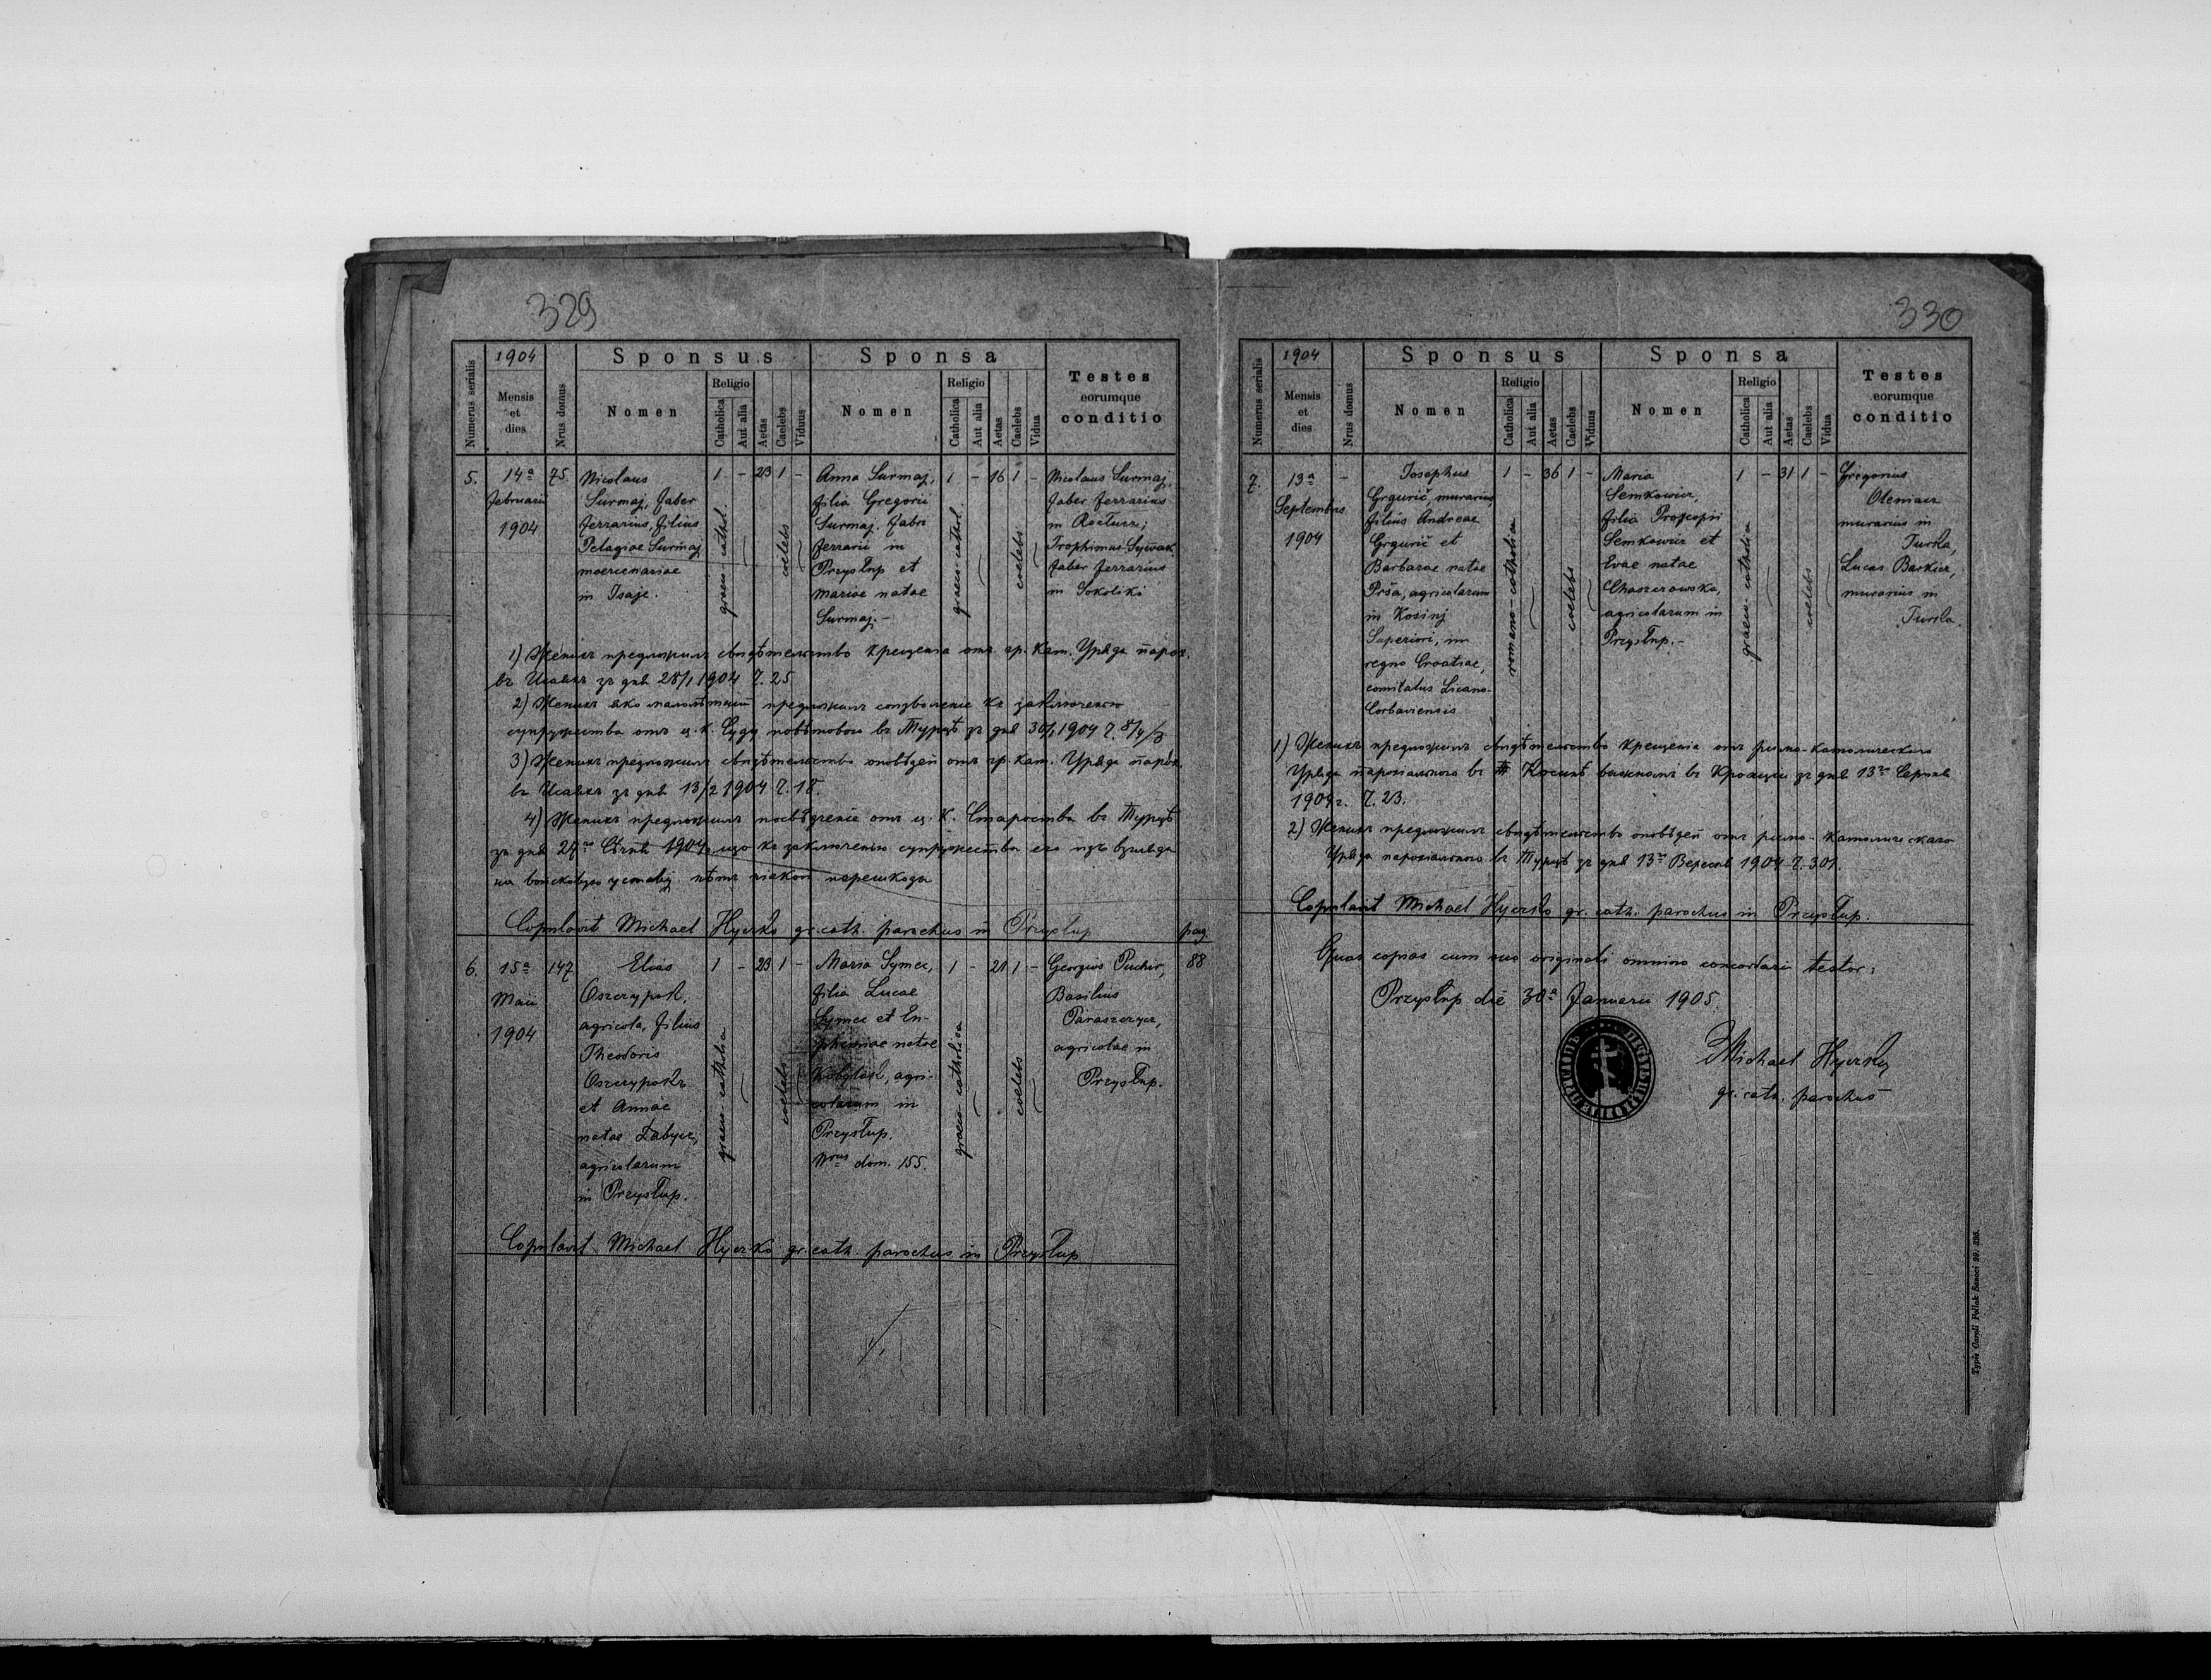 329
1904
Sponsus
Sponsa
Numerus serialis
Mensis
et
dies
Nrus domus
Nomen
Religio
Catholica
Aut alia
Aetas
Caelebs
Viduus
Nomen
Religio
Catholica
Aut alia
Aetas
Caelebs
Vidua
Testes
eorumque
conditio
5.
14a
Februarii
1904
75
Nicolaus
Surmaj, faber
ferrarius, filius
Pelagiae Surmaj
mercenariae
in Isaje.
1 - 23 1 -
graeco-cathol.
coelebs
Anna Surmaj,
filia Gregorii
Surmaj, fabri
ferrarii in
Przysłup et
Mariae natae
Surmaj.-
1 - 16 1 -
graeco-cathol.
coelebs
Nicolaus Surmaj,
faber ferrarius
in
Trophimus
faber ferrarius
in Sokoliki
1) Женихъ предложилъ свидѣтельство крещенія отъ гр. кат. Уряда парох.
въ Исаяхъ зъ дня 28/1 1904 Ч. 25
2) Женихъ яко малолѣтный предложилъ соизволеніе къ заключенію
супружества отъ ц. к. Суду повѣтового въ Турцѣ зъ дня 30/1 1904 Ч.
3) Женихъ предложилъ свидѣтельство оповѣдей отъ гр. кат. Уряда парох.
въ Исаяхъ зъ дня 13/2 1904 Ч. 18.
4) Женихъ предложилъ посвѣдченіе отъ ц. К. Староства въ Турцѣ
зъ дня 27 Сѣчня 1904, що къ заключенію супружества его изъ взгляда
на войсковую уставу нѣтъ
Copulavit Michael Hyczko gr. cath. parochus in Przysłup
pag.
88
6.
15a
Maii
1904
147
Elias
Oszczypok,
agricola, filius
Theodoris
Oszczypok
et Annae
natae Łabycz,
agricolarum
in Przysłup.
1 - 23 1 -
graeco-catholica
coelebs
Maria Symcz,
filia Lucae
Symcz et Eu-
phemiae natae
Kobylak, agri-
colarum in
Przysłup.
Nrus dom. 155.
1 - 21 1 -
graeco-catholica
coelebs
Georgius Puchir,
Basilius
Paraszczycz,
agricolae in
Przysłup.
Copulavit Michael Hyczko gr. cath. parochus in Przysłup
330
1904
Sponsus
Sponsa
Numerus serialis
Mensis
et
dies
Nrus domus
Nomen
Religio
Catholica
Aut alia
Aetas
Caelebs
Viduus
Nomen
Religio
Catholica
Aut alia
Aetas
Caelebs
Vidua
Testes
eorumque
conditio
7.
13a
Septembris
1904
-
Josephus
Grgurič, murarius,
filius Andreae
Grgurič et
Barbarae natae
Prša, agricolarum
in Kosinj
Superiori, in
regno Croatiae,
comitatus Licano-
Corbaviensis
1 - 36 1 -
romano-catholica
coelebs
Maria
Semkowicz,
filia Procopii
Semkowicz et
Evae natae
Chaszczowska,
agricolarum in
Przysłup.-
1 - 31 1 -
graeco-catholica
coelebs
Gregorius
murarius in
Turka,
Lucas
murarius in
Turka.
1) Женихъ предложилъ свидѣтельство крещенія отъ римо-католического
Уряда парохіального въ въ Кроаціи зъ дня 13 Серпня
1904 г. Ч. 23.
2) Женихъ предложилъ свидѣтельство оповѣдей отъ римо-католическаго
Уряда парохіального въ Турцѣ зъ дня 13 Вересня 1904 Ч. 301.
Copulavit Michael Hyczko gr. cath. parochus in Przysłup.
Quas copias cum suo originali omnino concordari testor:
Przysłup die 30a Januarii 1905.
Michael Hyczko
gr. cath. parochus
Typis Caroli Pollak Sanoci